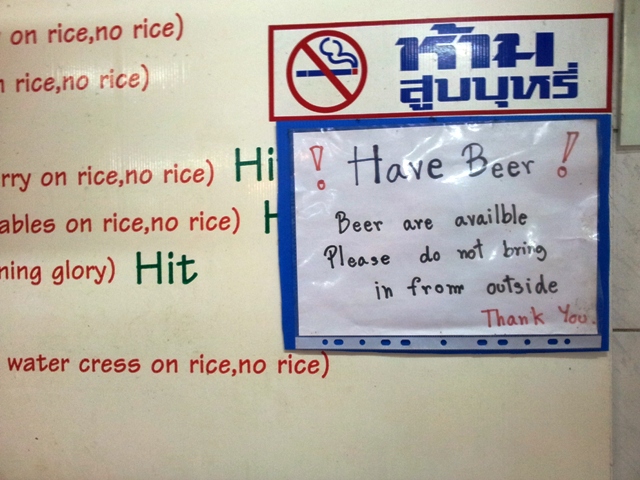 on rice,no rice)
rice,no rice)
rry on rice,no rice) Hi
ables on rice,no rice) H
ning glory) Hit
water cress on rice,no rice)
ห้าม
สูบบุหรี่
! Have Beer !
Beer are availble
Please do not bring
in from outside
Thank You.